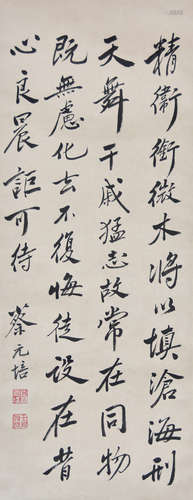 精衛銜微木將以填滄海刑
天舞干戚猛志故常在同物
既無慮化去不復悔徒設在昔
心良晨詎可待
蔡元培